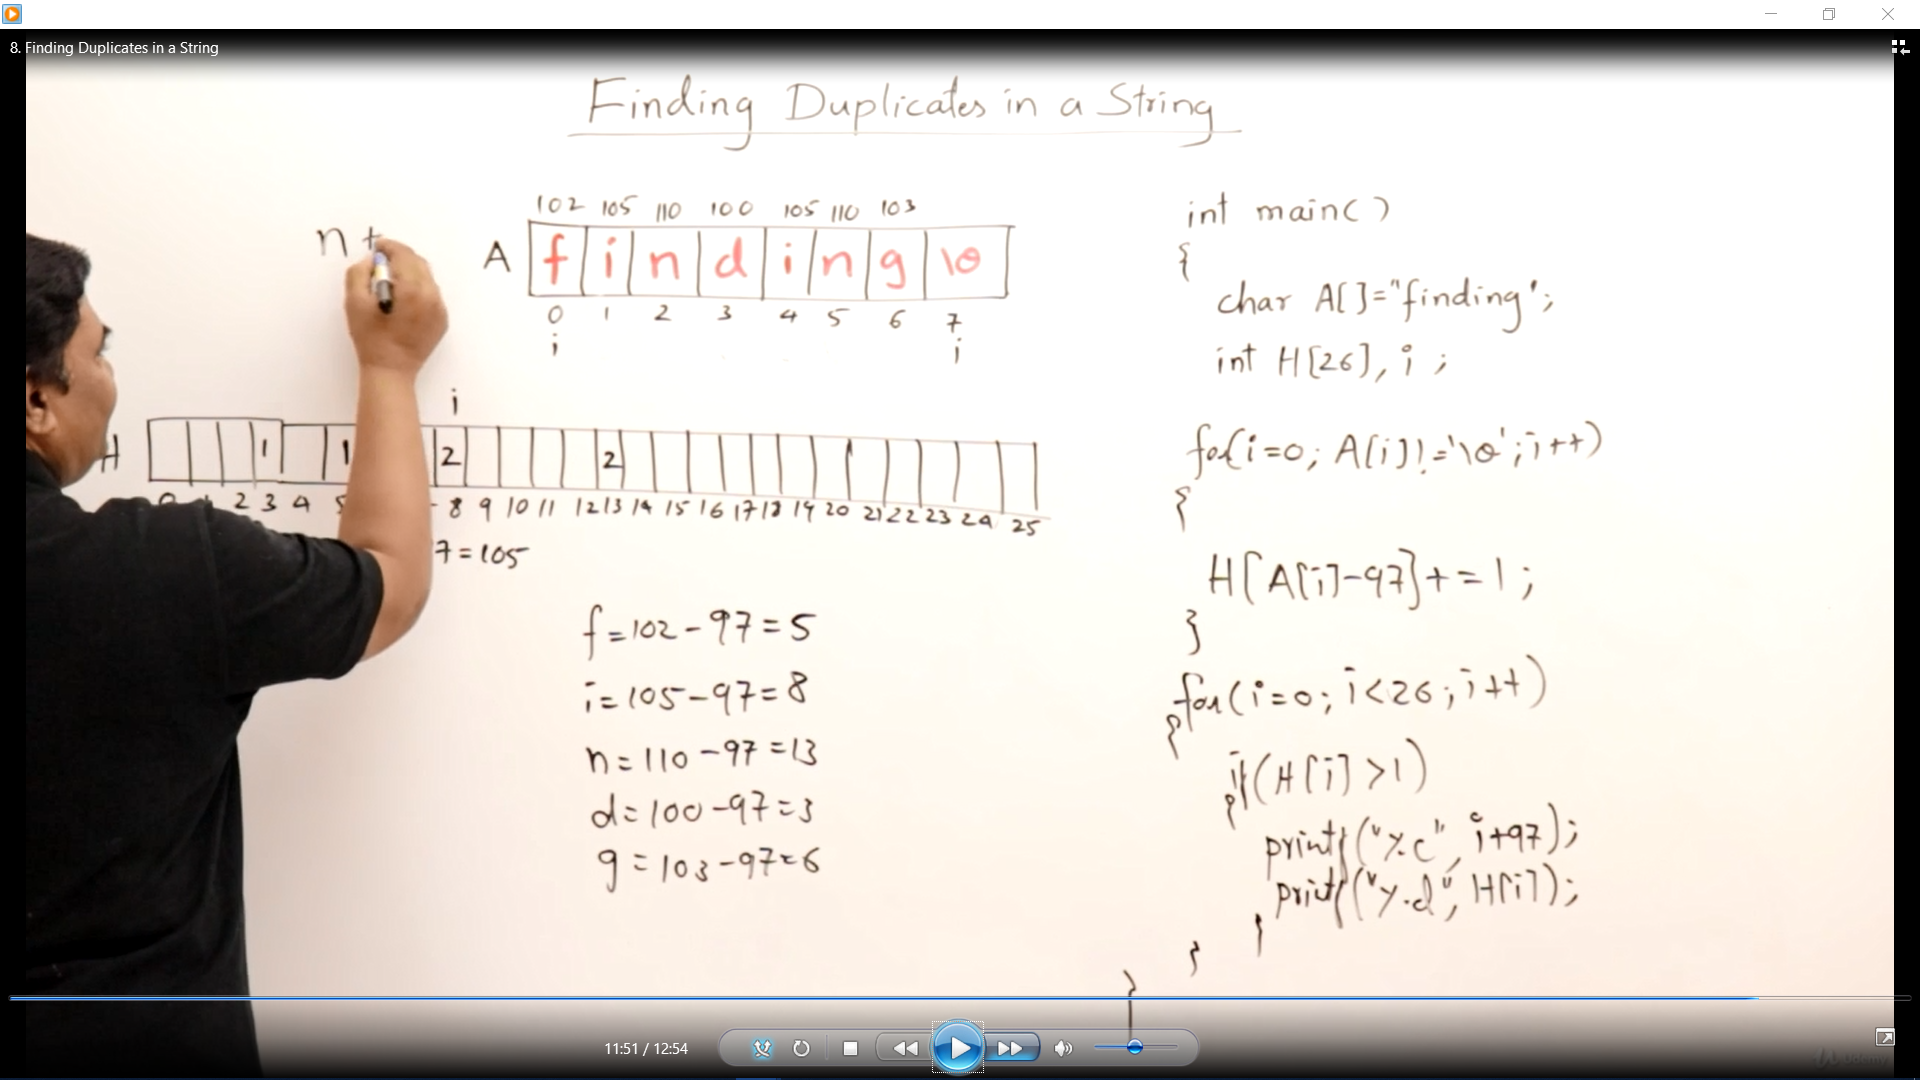 8. Finding Duplicates in a String
Finding Duplicates in a String
n +
102 105 110 100 105 110 103
A f i n d i n g \0
0 1 2 3 4 5 6 7
i i
i
H 1 1 2 2
2 3 4 5 8 9 10 11 12 13 14 15 16 17 18 19 20 21 22 23 24 25
7 = 105
f = 102 - 97 = 5
i = 105 - 97 = 8
n = 110 - 97 = 13
d = 100 - 97 = 3
g = 103 - 97 = 6
int main( )
{
char A[ ]="finding';
int H[26], i ;
for(i=0; A[i]!='\0'; i++)
{
H[A[i]-97]+=1;
}
for(i=0; i<26; i++)
{
if(H[i]>1)
{
printf("%c", i+97);
printf("%d", H[i]);
}
}
}
11:51 / 12:54
Udemy